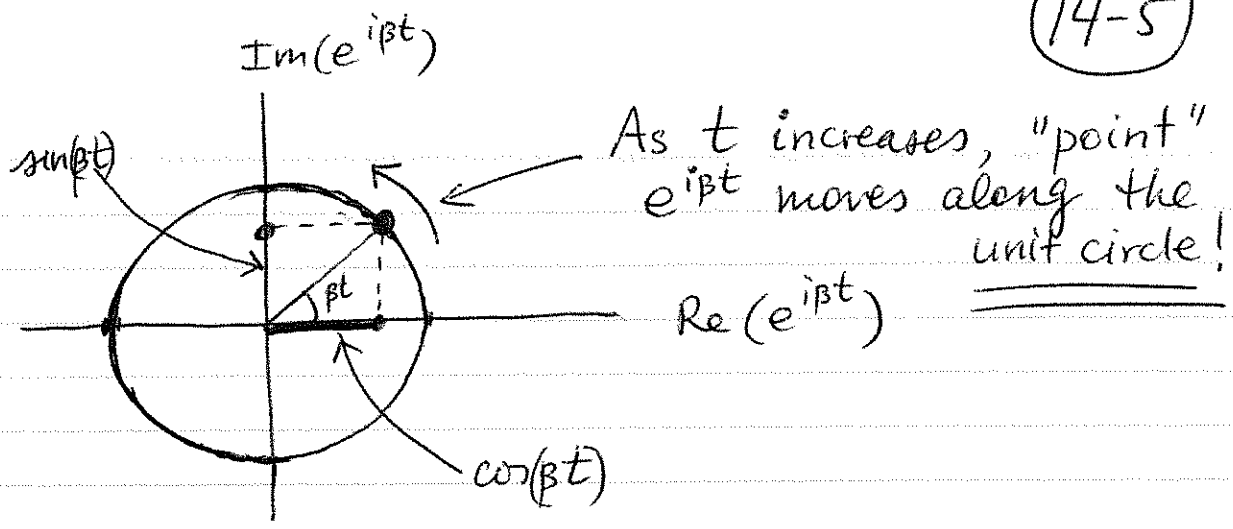 14-5
Im(e^{iβt})
sin(βt)
As t increases, "point"
e^{iβt} moves along the
unit circle!
βt
Re(e^{iβt})
cos(βt)